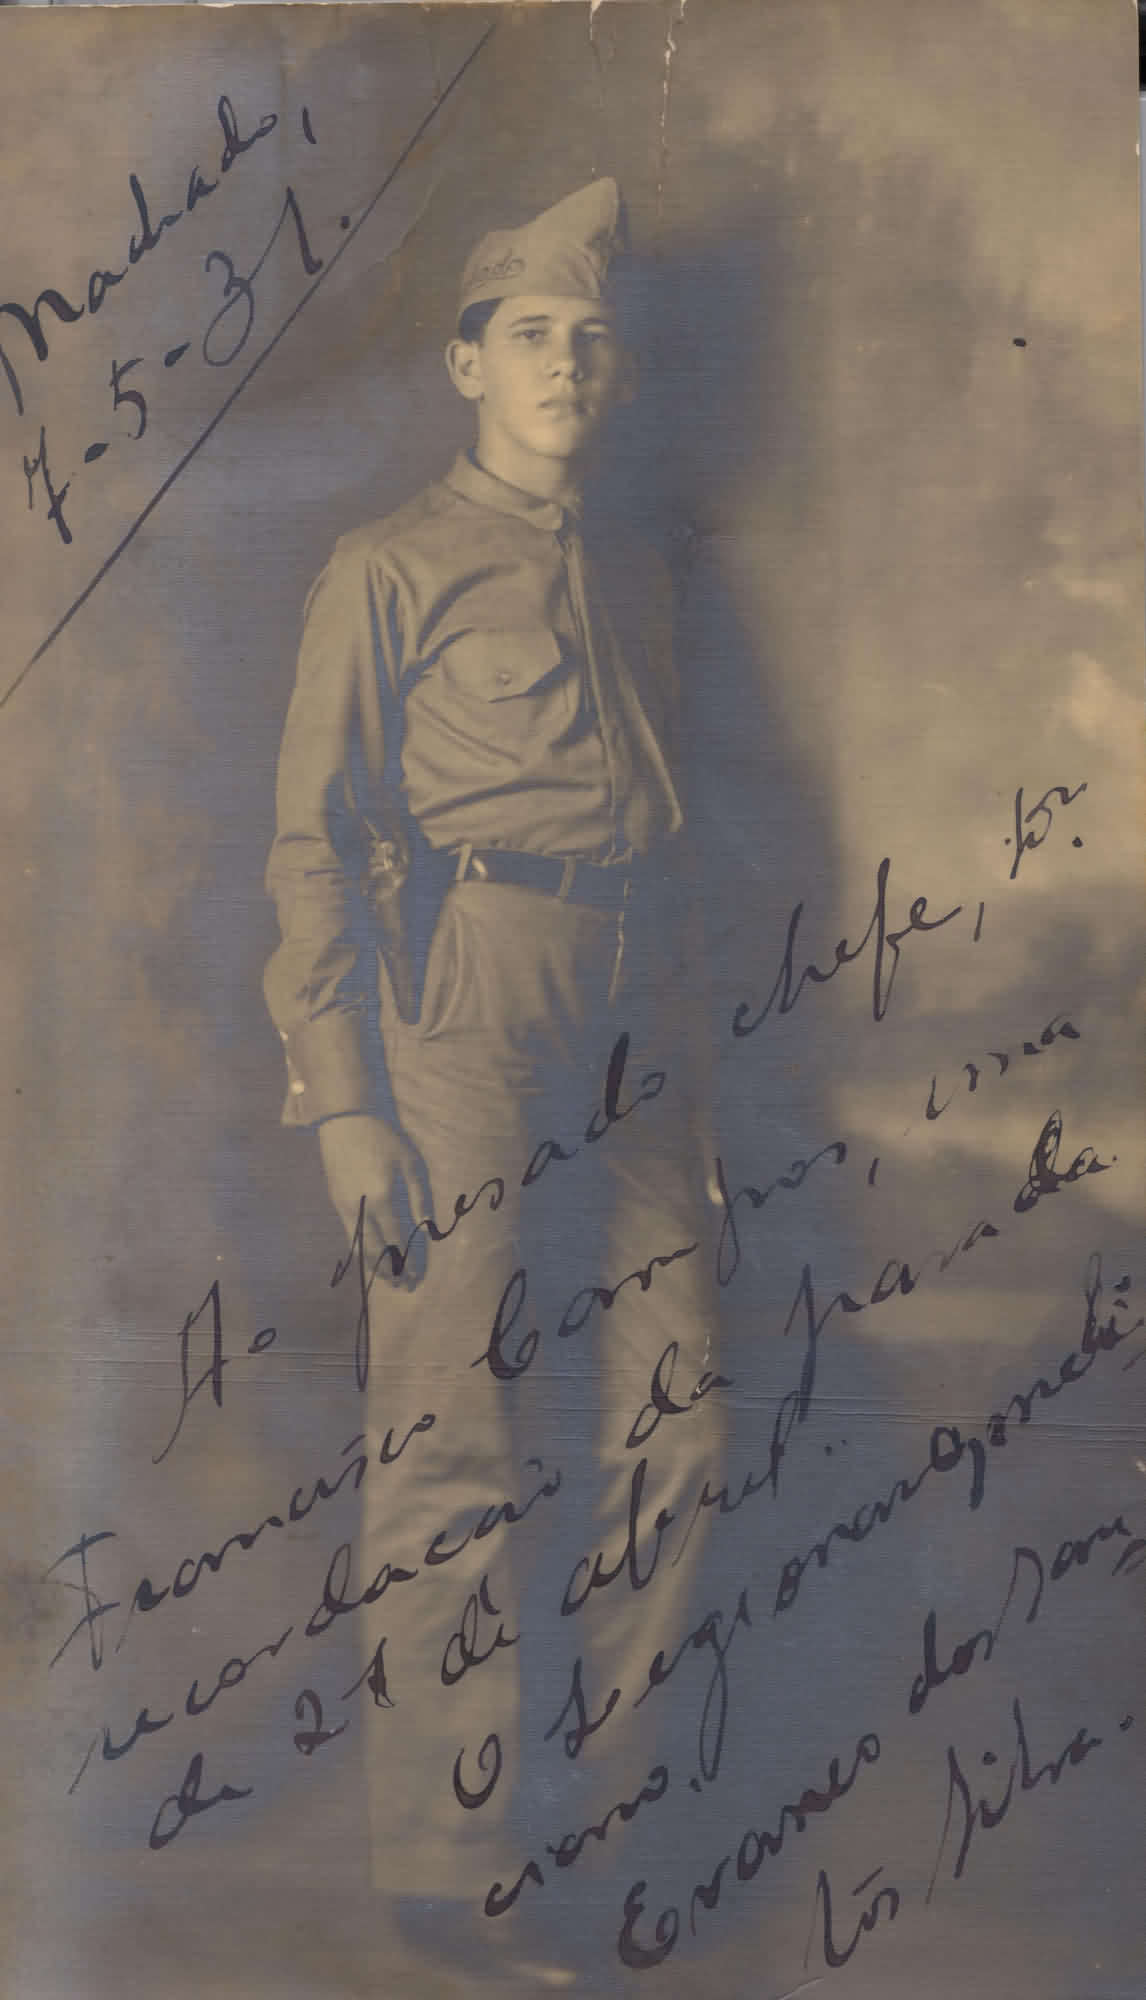 Machado,
7-5-31.
Ao presado chefe, Dr.
Francisco Campos, uma
recordação da parada
de 21 de abril.
O Legionario
Evanes dos San=
tos Silva.